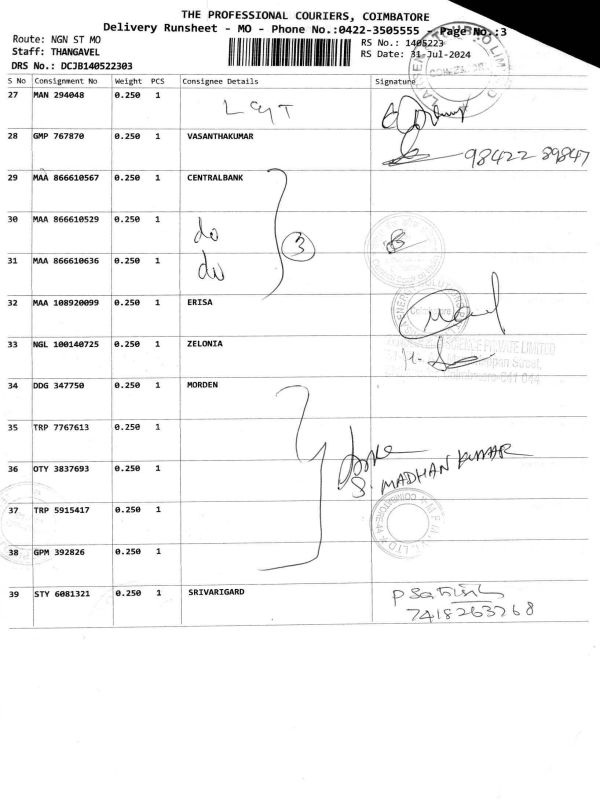 THE PROFESSIONAL COURIERS, COIMBATORE
Delivery Runsheet - MO - Phone No.:0422-3505555 - Page No.:3
Route: NGN ST MO
RS No.: 1405223
Staff: THANGAVEL
RS Date: 31-Jul-2024
DRS No.: DCJB140522303
S No Consignment No Weight PCS Consignee Details Signature
27 MAN 294048 0.250 1
28 GMP 767870 0.250 1 VASANTHAKUMAR
98422 89847
29 MAA 866610567 0.250 1 CENTRALBANK
30 MAA 866610529 0.250 1 do
3
31 MAA 866610636 0.250 1 do
32 MAA 108920099 0.250 1 ERISA
33 NGL 100140725 0.250 1 ZELONIA
34 DDG 347750 0.250 1 MORDEN
35 TRP 7767613 0.250 1
36 OTY 3837693 0.250 1
S. MADHAN KUMAR
37 TRP 5915417 0.250 1
38 GPM 392826 0.250 1
39 STY 6081321 0.250 1 SRIVARIGARD
P Satish
7418263268